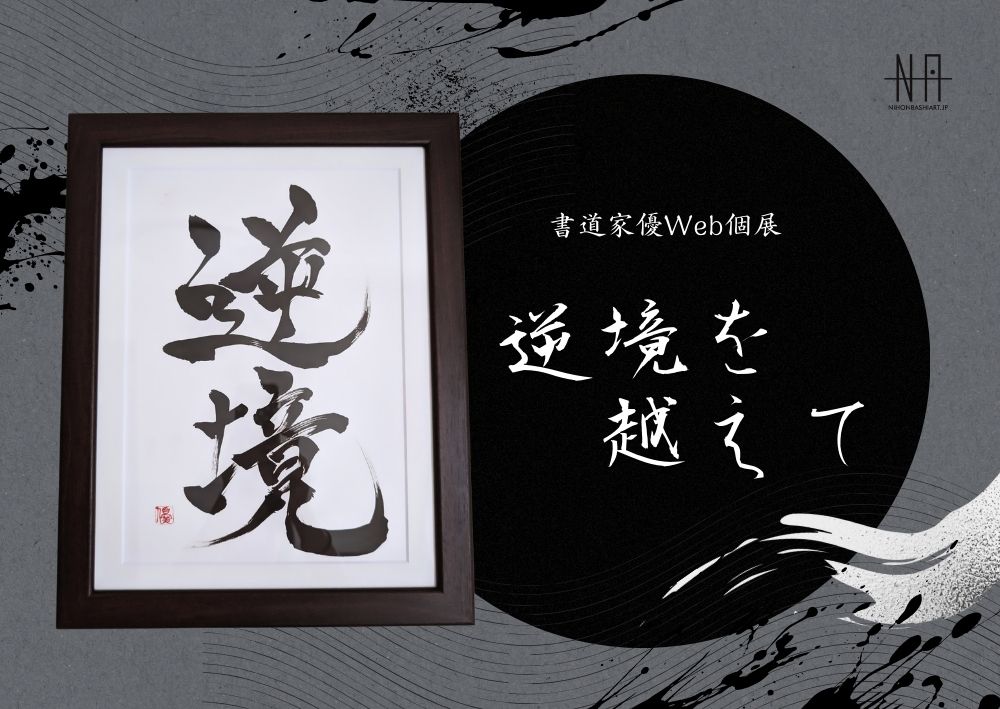 逆境
優
NA
NIHONBASHIART.JP
書道家優Web個展
逆境を
越えて